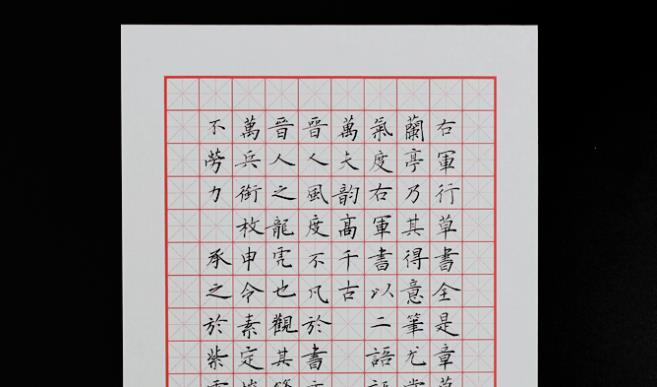 右軍行草書全是章草
蘭亭乃其得意筆尤
氣度右軍書以二語
萬夫韵高千古
晉人風度不凡於書
晉人之龍虎也觀其
萬兵銜枚申令素定
不劳力 承之於紫